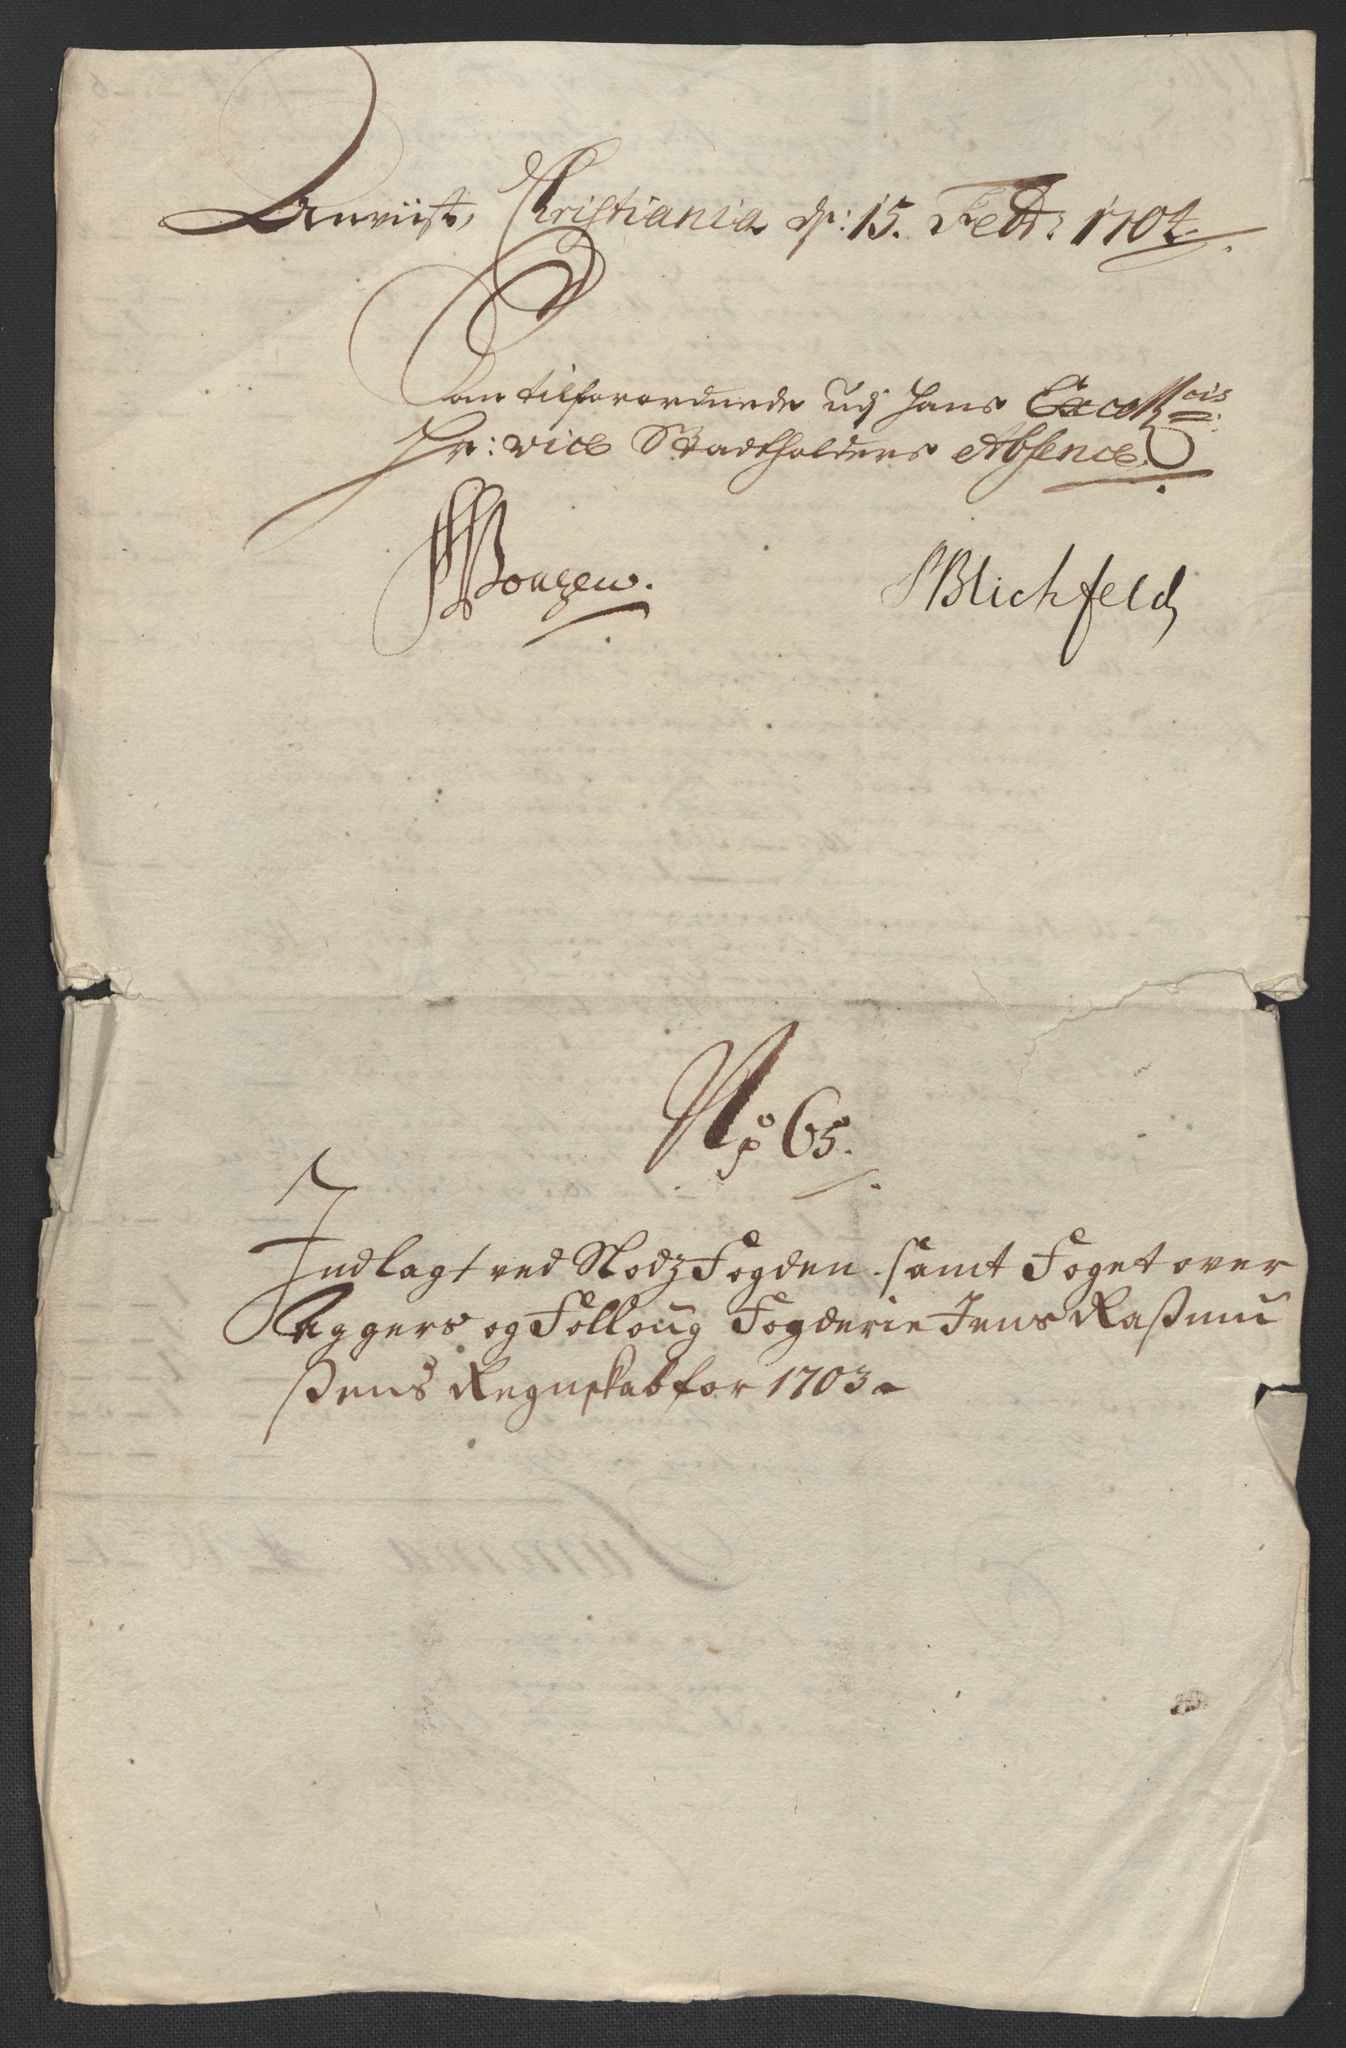 Anviist, Christiania dp: 15. Febr: 1704.
antilforordnede udj Hans Excellcis:
Hr: vice Stadtholders Absence.
Blichfeld
No 65.
Indlagt ved Slodz Fogden samt Foget over
Aggers og Folloug Fogderie Jens Raßmu
ßens Regnskab for 1703